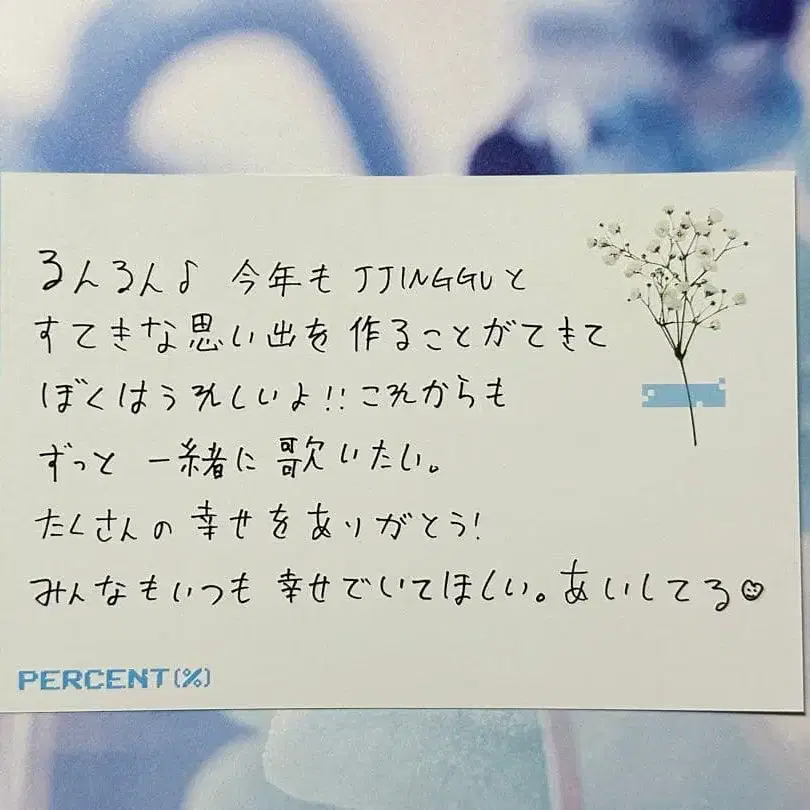 るんるん♪ 今年も JJINGGUと
すてきな思い出を 作ることができて
ぼくはうれしいよ!! これからも
ずっと 一緒に 歌いたい。
たくさんの 幸せを ありがとう!
みんなもいつも 幸せでいてほしい。あいしてる☺
PERCENT(%)